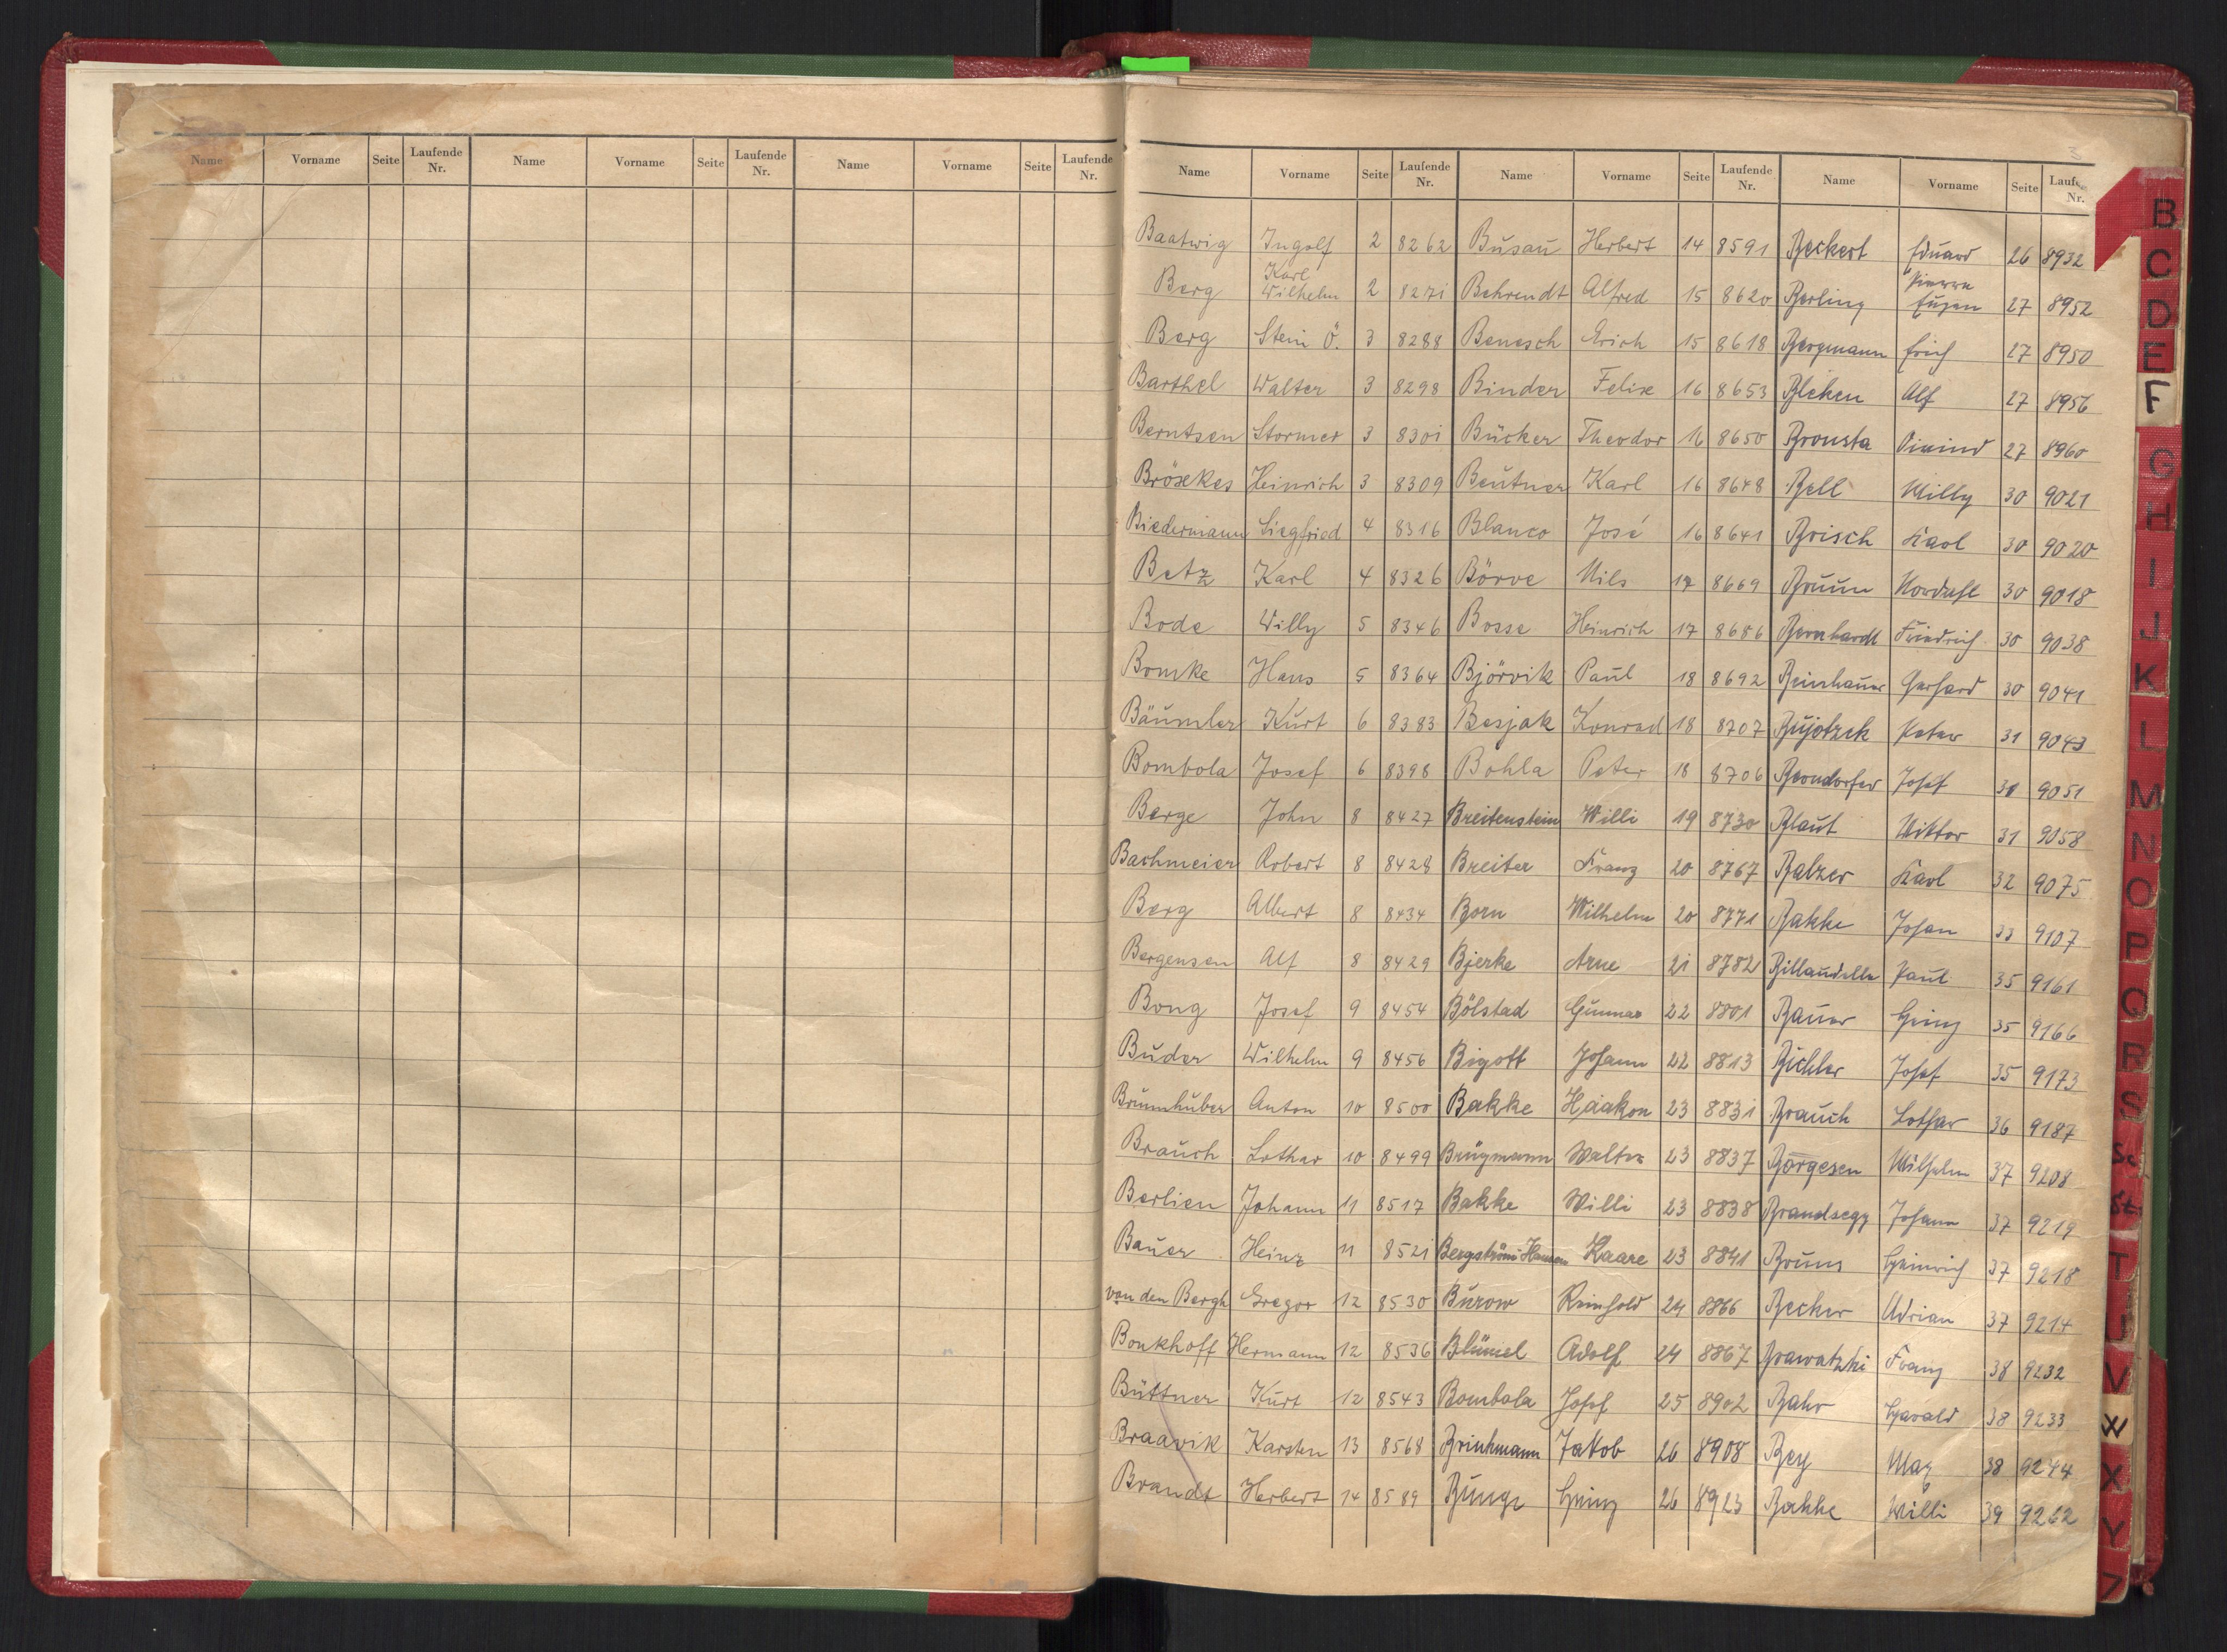 Name Vorname Seite Laufende Nr. Name Vorname Seite Laufende Nr. Name Vorname Seite Laufende Nr.
Name Vorname Seite Laufende Nr. Name Vorname Seite Laufende Nr. Name Vorname Seite Nr.
Baatwig Ingolf 2 8262 Busaŭ Herbert 14 8591 Beckert Eduard 26 8932
Berg Karl Wilhelm 2 8271 Behrendt Alfred 15 8620 Berling Pierre Eugen 27 8952
Berg Stein Ö. 3 8288 Benesch Erich 15 8618 Bergmann Erich 27 8950
Barthel Walter 3 8298 Binder Felix 16 8653 Bleken Alf 27 8956
Berntsen Stormer 3 8301 Bücker Theodor 16 8650 Bronsta Oivind 27 8960
Brösekes Heinrich 3 8309 Beutner Karl 16 8648 Bell Willy 30 9021
Biedermann Siegfried 4 8316 Blanco José 16 8641 Brisch Karl 30 9020
Betz Karl 4 8326 Börve Nils 17 8669 Bruun Nordahl 30 9018
Bode Willy 5 8346 Bosse Heinrich 17 8686 Bernhardt Friedrich 30 9038
Bomke Hans 5 8364 Björvik Paul 18 8692 Beinhauer Gerhard 30 9041
Bäumler Kurt 6 8383 Besjak Konrad 18 8707 Bujotzek Peter 31 9043
Bombola Josef 6 8398 Bohla Peter 18 8706 Berndorfer Josef 31 9051
Berge John 8 8427 Breitenstein Willi 19 8730 Blaut Viktor 31 9058
Bachmeier Robert 8 8428 Breiter Franz 20 8767 Balzer Karl 32 9075
Berg Albert 8 8434 Born Wilhelm 20 8771 Bakke Johan 33 9107
Bergensen Alf 8 8429 Bjerke Arne 21 8782 Billaudelle Paul 35 9161
Bong Josef 9 8454 Bölstad Gunnar 22 8801 Bauer Heinz 35 9166
Buder Wilhelm 9 8456 Bigott Johann 22 8813 Bichler Josef 35 9173
Brumhuber Anton 10 8500 Bakke Haakon 23 8831 Brauch Lothar 36 9187
Brauch Lothar 10 8499 Brügmann Walter 23 8837 Börgesen Wilhelm 37 9208
Berlien Johann 11 8517 Bakke Willi 23 8838 Brandsegg Johann 37 9219
Bauer Heinz 11 8521 Bergström-Hansen Kaare 23 8841 Bruns Heinrich 37 9218
von den Bergh Gregor 12 8530 Burow Reinhold 24 8866 Becker Adrian 37 9214
Bonkhoff Hermann 12 8536 Blümel Adolf 24 8867 Brawatzki Franz 38 9232
Büttner Kurt 12 8543 Bombola Josef 25 8902 Bahr Harald 38 9233
Braavik Karsten 13 8568 Brinkmann Jakob 26 8908 Bey Max 38 9244
Brandt Herbert 14 8589 Bunge Heinz 26 8923 Bakke Willi 39 9262
B
C
D
E
F
G
H
I
J
K
L
M
N
O
P
Q
R
S
Sch
St
T
U
V
W
X
Y
Z